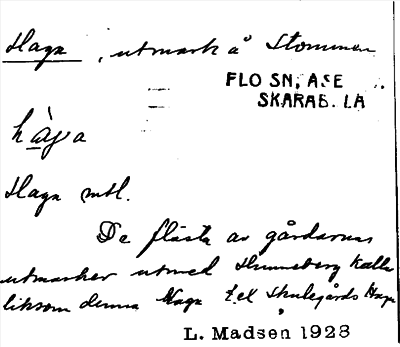 Haga, utmark å Stommen
FLO SN, ÅSE
SKARAB. LÄ
hàga
Haga mtl.
De flästa av gårdarnas
utmarker utmed Hunneberg kallas
liksom denna Haga t.ex Skulegårds Haga
L. Madsen 1928